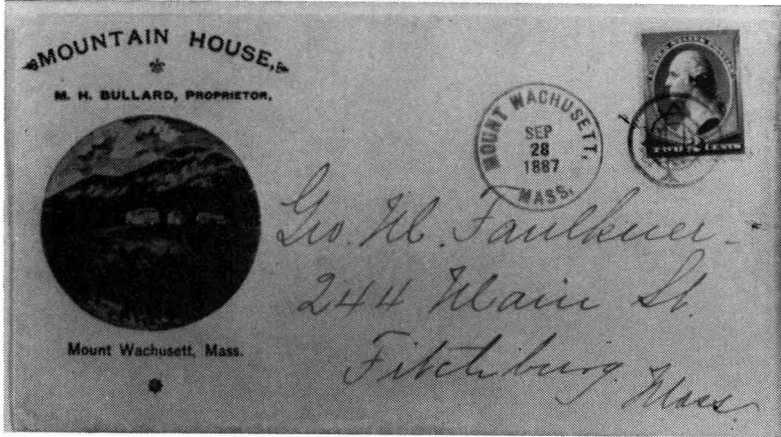 MOUNTAIN HOUSE,
M. H. BULLARD, PROPRIETOR,
Mount Wachusett, Mass.
MOUNT WACHUSETT,
SEP
28
1887
MASS.
TWO CENTS
Geo. M. Faulkner
244 Main St.
Fitchburg
Mass